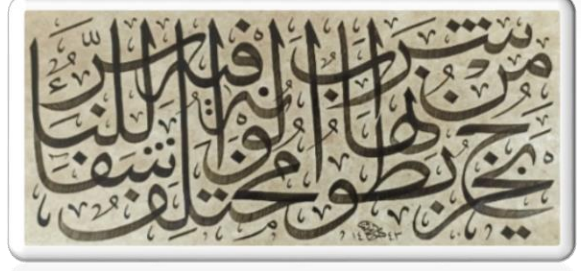 يخرج من بطونها شراب مختلف ألوانه فيه شفاء للناس
١٤٤٣